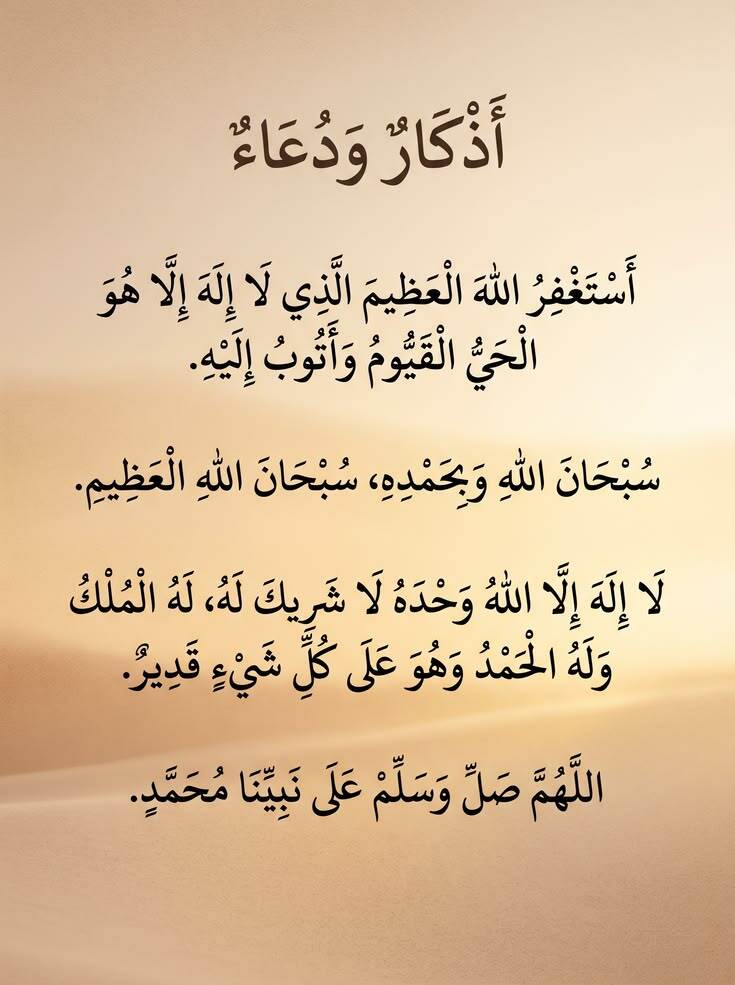 أَذْكَارٌ وَدُعَاءٌ
أَسْتَغْفِرُ اللهَ الْعَظِيمَ الَّذِي لَا إِلَهَ إِلَّا هُوَ
الْحَيُّ الْقَيُّومُ وَأَتُوبُ إِلَيْهِ.
سُبْحَانَ اللهِ وَبِحَمْدِهِ، سُبْحَانَ اللهِ الْعَظِيمِ.
لَا إِلَهَ إِلَّا اللهُ وَحْدَهُ لَا شَرِيكَ لَهُ، لَهُ الْمُلْكُ
وَلَهُ الْحَمْدُ وَهُوَ عَلَى كُلِّ شَيْءٍ قَدِيرٌ.
اللَّهُمَّ صَلِّ وَسَلِّمْ عَلَى نَبِيِّنَا مُحَمَّدٍ.